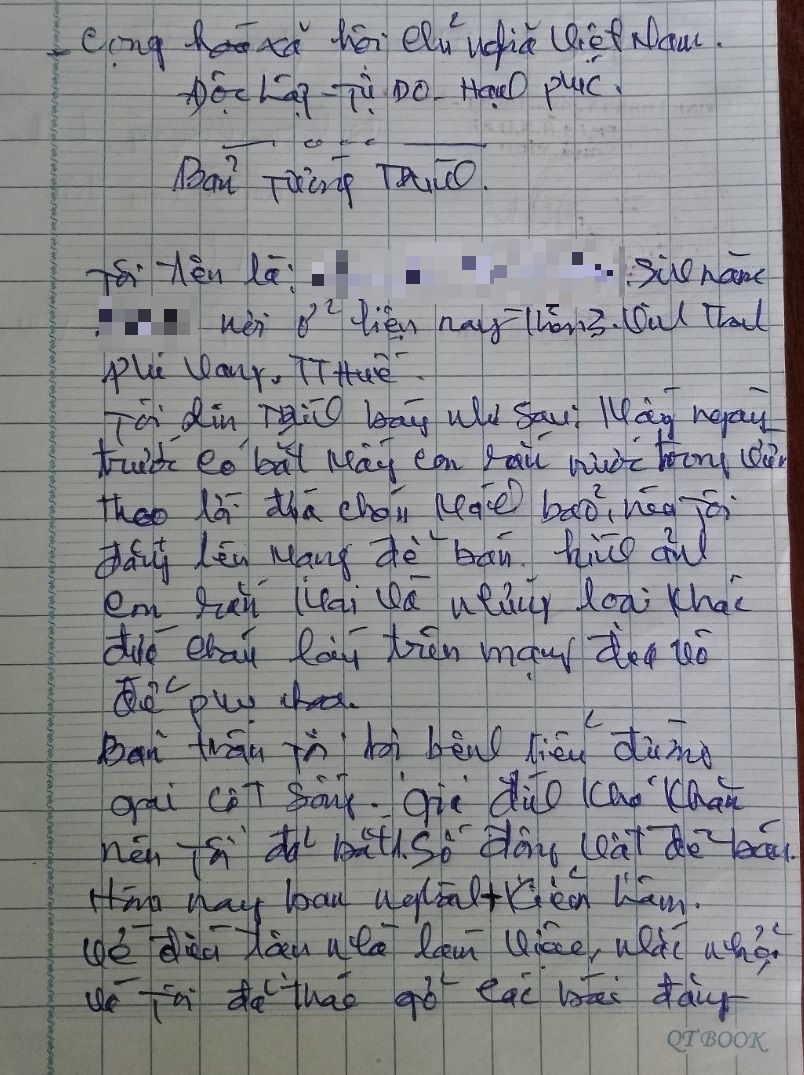 Cộng hoà xã hội chủ nghĩa Việt Nam.
Độc Lập - Tự Do - Hạnh phúc.
Bản Tường Trình.
Tôi tên là: sinh năm
nơi ở hiện nay Thôn 3. Vinh Thanh
Phú Vang. TT Huế.
Tôi xin Trình bày như sau: Mấy ngày
trước có bắt mấy con rắn nước trong vườn
theo lời chách bảo, nên Tôi
đăng lên mạng để bán. hình ảnh
con rắn và những loại khác
được lấy trên mạng
để
Bản thân Tôi bị bệnh tiểu đường
gai cột sống. gia đình khó khăn
nên Tôi đã bắt 1 số động vật để bán.
Hôm nay ban ngành Kiểm Lâm.
về đến tận nhà làm việc, nhắc nhở
và Tôi đã tháo gỡ các bài đăng
QTBOOK